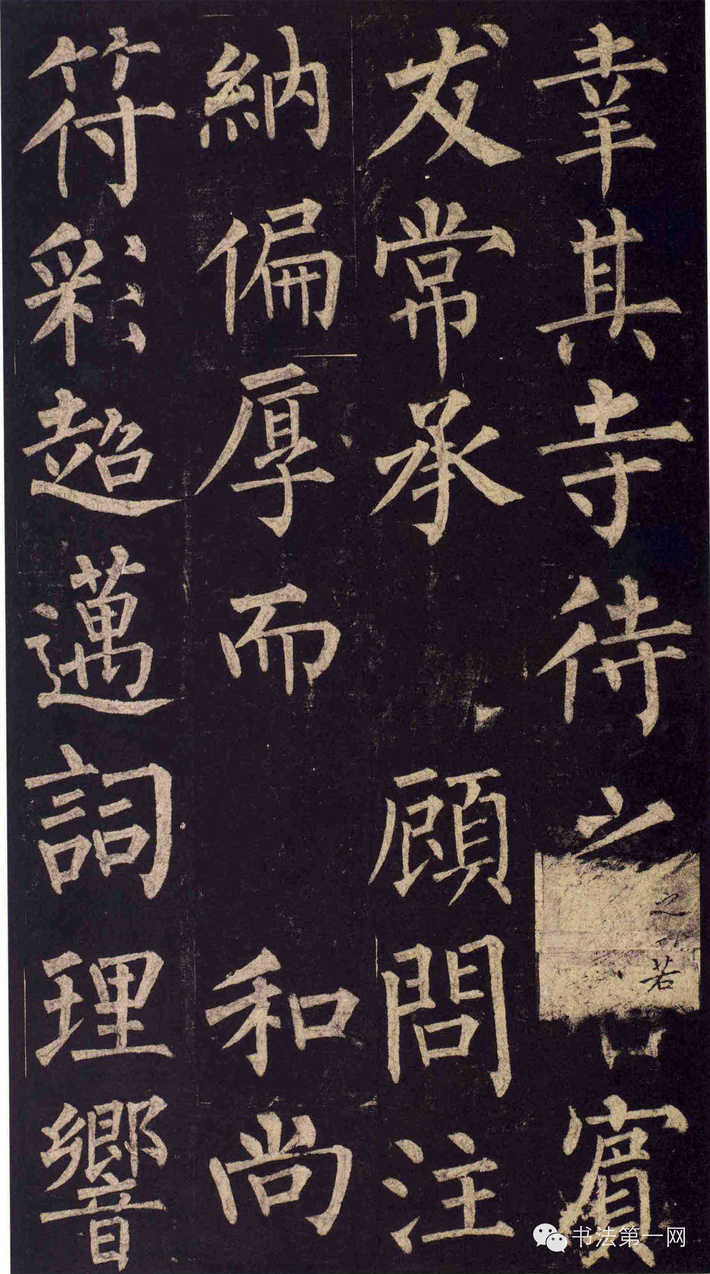 幸其寺待之若賓
友常承顧問注
納偏厚而和尚
符彩超邁詞理響
之若
书法第一网